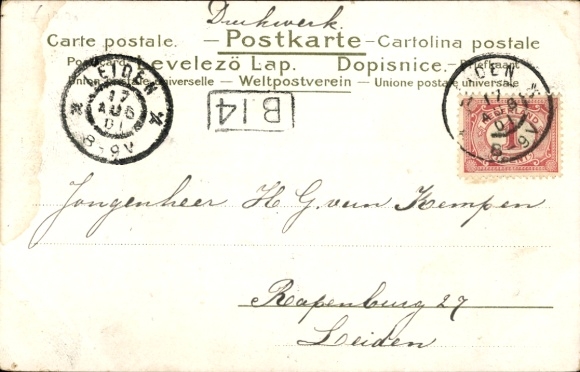 Drukwerk.
Carte postale. — Postkarte — Cartolina postale
Levelező Lap. Dopisnice. Briefkaart
Union postale universelle — Weltpostverein — Unione postale universale
LEIDEN
17
AUG
01
8-9V
B.14
LEIDEN
17
AUG
01
8-9V
NEDERLAND
1
CENT
Jongenheer H. G. van Kempen
Rapenburg 27
Leiden